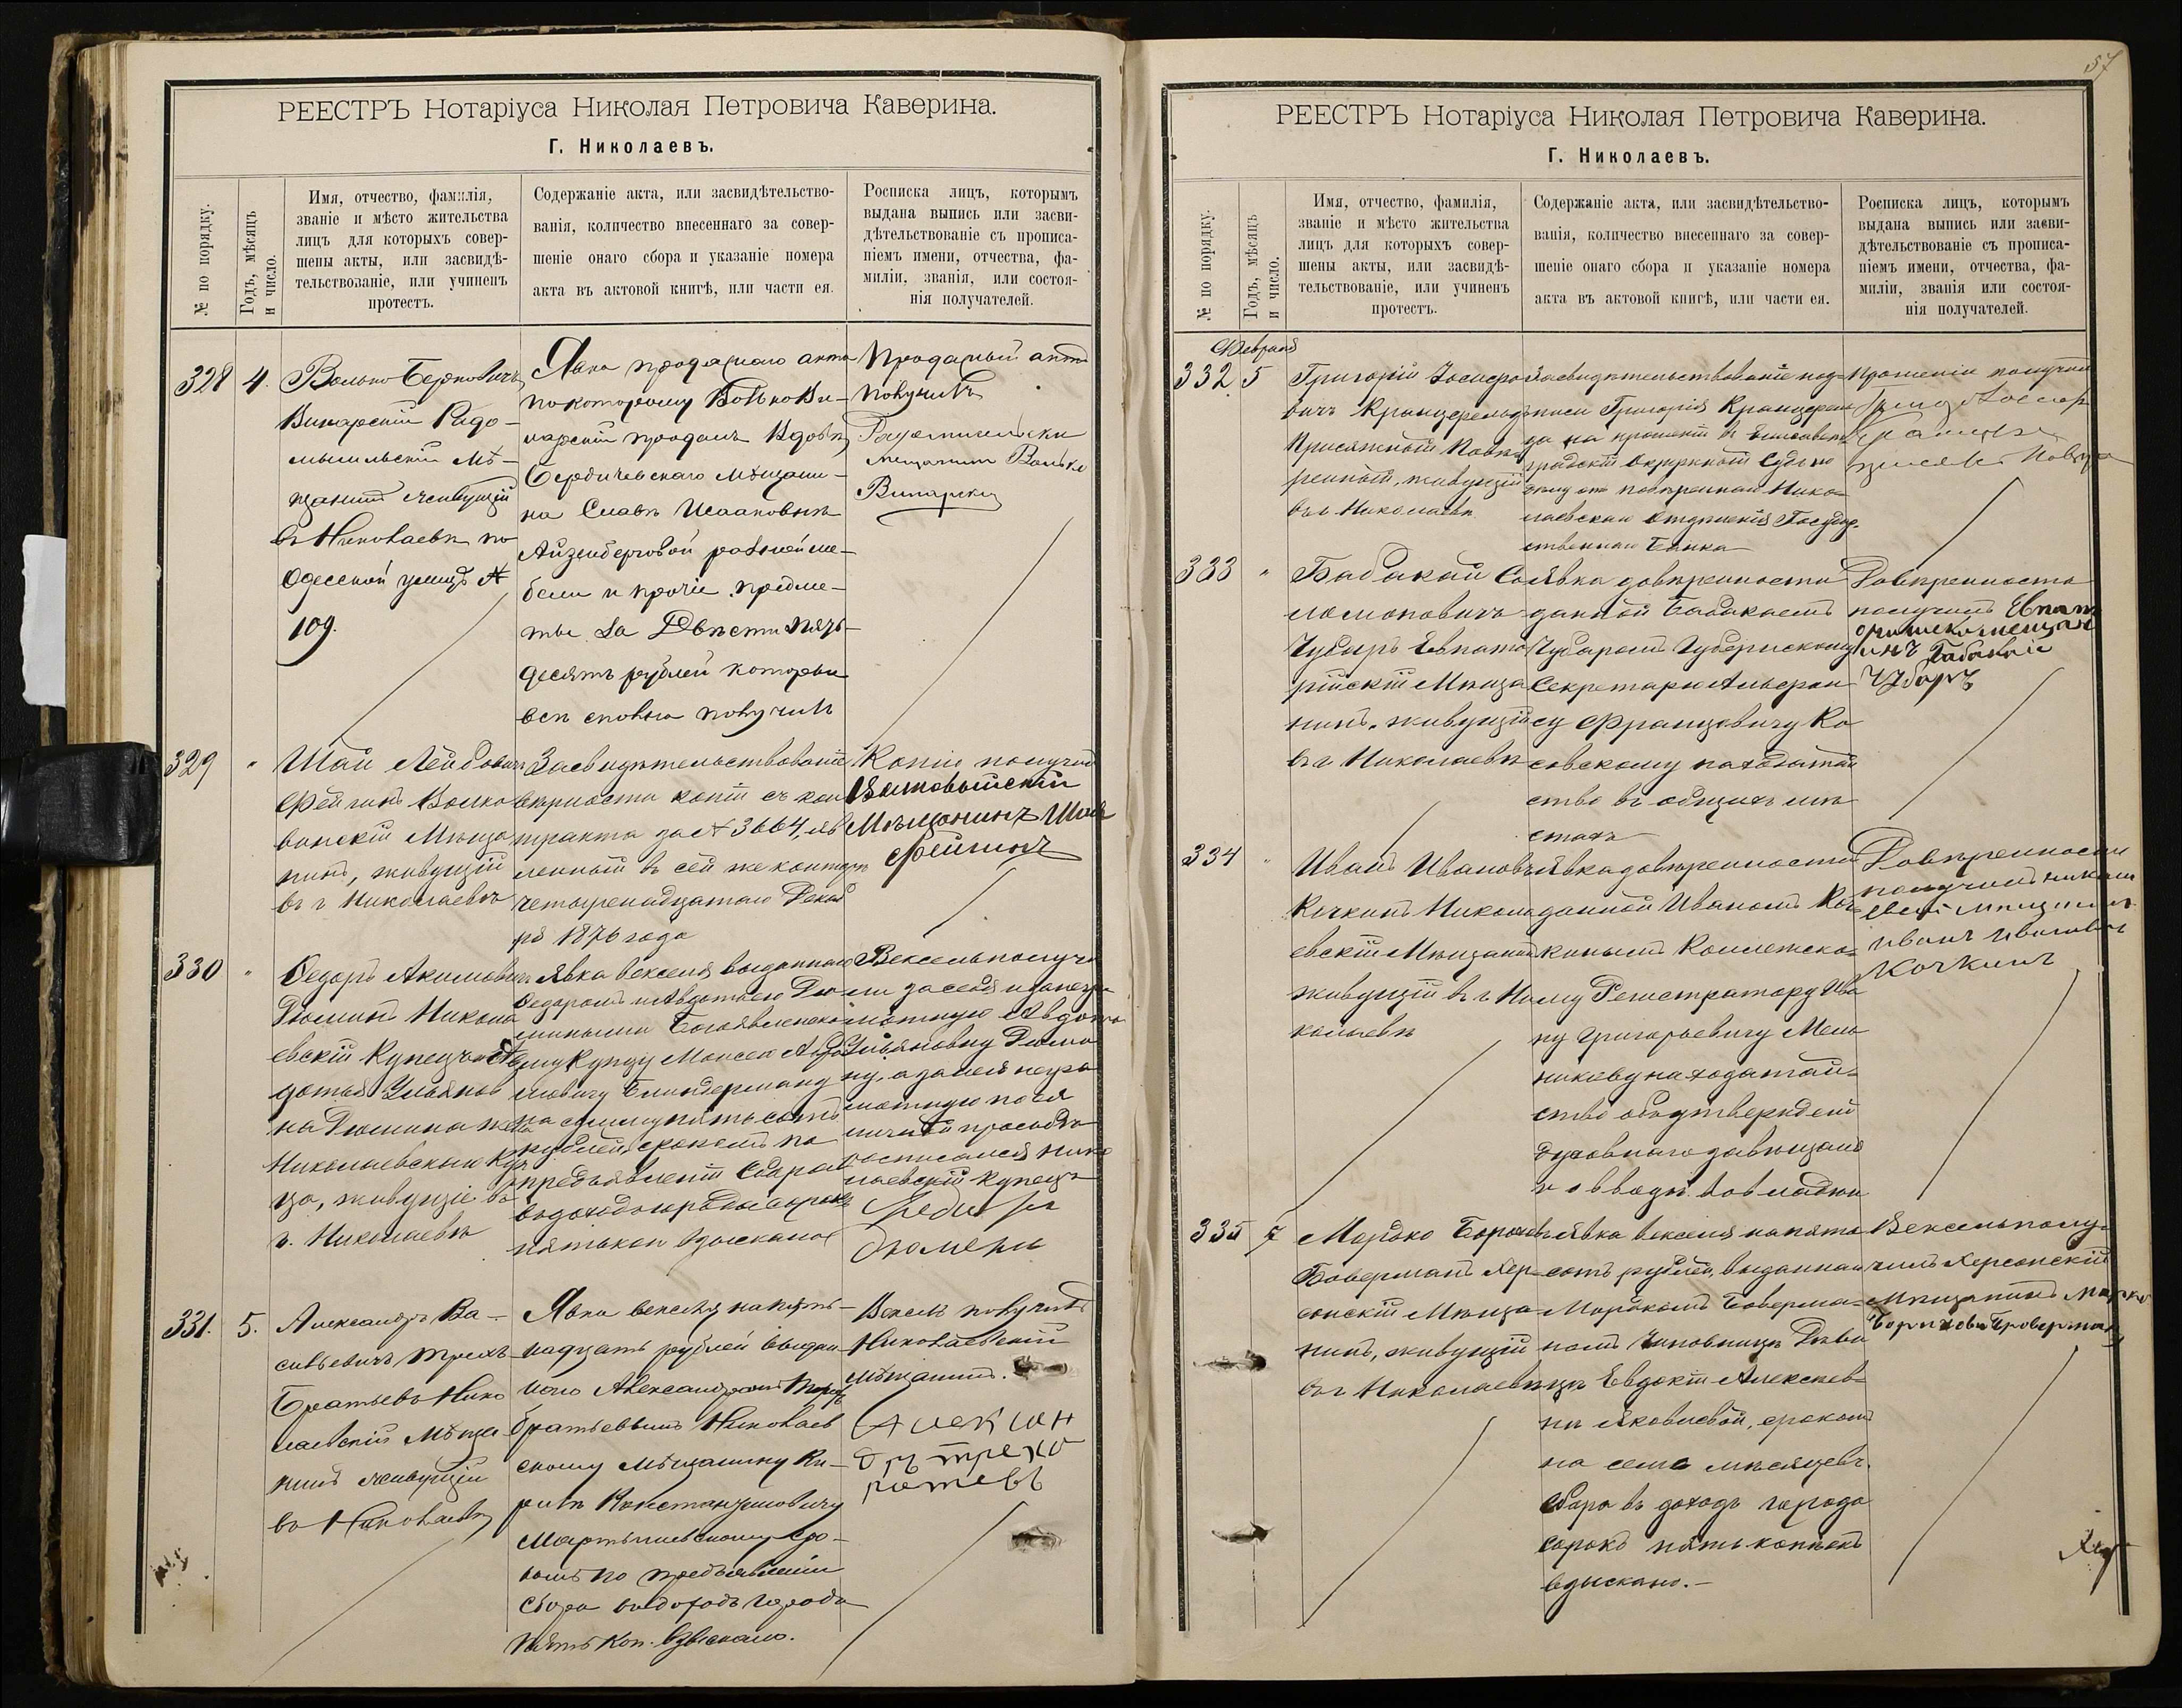 РЕЕСТРЪ Нотаріуса Николая Петровича Каверина.
Г. Николаевъ.
№ по порядку.
Годъ, мѣсяцъ
и число.
Имя, отчество, фамилія,
званіе и мѣсто жительства
лицъ для которыхъ совер-
шены акты, или засвидѣ-
тельствованіе, или учиненъ
протестъ.
Содержаніе акта, или засвидѣтельство-
ванія, количество внесеннаго за совер-
шеніе онаго сбора и указаніе номера
акта въ актовой книгѣ, или части ея.
Росписка лицъ, которымъ
выдана выпись или засви-
дѣтельствованіе съ прописа-
ніемъ имени, отчества, фа-
миліи, званія, или состоя-
нія получателей.
328 4.
Волько Берковичъ
Винарскій Радо-
мысльскій Мѣ-
щанинъ живущій
въ Николаевѣ по
Одесской улицѣ №
109.
Явка продажнаго акта
по которому Волько Ви-
нарскій продалъ Вдовѣ
Бердичевскаго Мѣщани-
на Славѣ Исааковнѣ
Айзенберговой разной ме-
бели и прочіе предме-
ты за Двѣсти пять-
десятъ рублей которые
всѣ сполна получилъ
Продажный актъ
получилъ
мещанин Волько
Винарски
329 "
Шая Лейбовичъ
Фейгинъ Волко-
вискій Мѣща
нинъ, живущій
въ г Николаевѣ
Засвидѣтельствованіе
вѣрности копіи съ кон
тракта за № 3664, яв
леннаго въ сей же конторѣ
четырнадцатаго Декаб
ря 1876 года
Копію получилъ
Мѣщанинъ Шая
Фейгинъ
330 "
Ѳедоръ Акимовичъ
Дюминъ Никола
евскій Купецъ и Ав
дотья Ульянов
на Дюмина жена
Николаевскаго Куп
ца, живущіе въ
г. Николаевѣ
Явка векселя выданнаго
Ѳедоромъ и Авдотьею Дю
миными Богоявленско
му Купцу Моисею
Блиндерману
на сумму пять сотъ
рублей срокомъ по
предъявленіи Сбора
въ доходъ города сорокъ
пять коп взыскано
Вексель получи
ли за себя и за негра
мотную Авдотью
Ульяновну Дюми
ну, а за нея негра
мотную по ея
личной просьбѣ
росписался Нико
лаевскій купецъ
331. 5.
Александръ Ва-
сильевичъ Трехъ
Братьевъ Нико
лаевскій Мѣща
нинъ живущій
въ Николаевѣ
Явка векселя на пят-
надцать рублей выдан
наго Александромъ Трехъ
братьевымъ Николаев
скому Мѣщанину Ки-
рилѣ Константиновичу
Мартыновскому сро-
комъ по предъявленіи
Сбора въ доходъ города
пять коп. взыскано.
Вексель получилъ
Николаевскій
мѣщанинъ.
Алексан
дръ трехб
ратевъ
57
РЕЕСТРЪ Нотаріуса Николая Петровича Каверина.
Г. Николаевъ.
№ по порядку.
Годъ, мѣсяцъ
и число.
Имя, отчество, фамилія,
званіе и мѣсто жительства
лицъ для которыхъ совер-
шены акты, или засвидѣ-
тельствованіе, или учиненъ
протестъ.
Содержаніе акта, или засвидѣтельство-
ванія, количество внесеннаго за совер-
шеніе онаго сбора и указаніе номера
акта въ актовой книгѣ, или части ея.
Росписка лицъ, которымъ
выдана выпись или засви-
дѣтельствованіе съ прописа-
ніемъ имени, отчества, фа-
миліи, званія или состоя-
нія получателей.
Февраля
332 5
Григорій Іосифо
вичъ Кранцфельдъ
Присяжный Повѣ
ренный, живущій
въ г Николаевѣ
Засвидѣтельствованіе под-
писи Григорія Кранцфель
да на прошеніи въ Елисавет
градскій Окружный Судъ по
Нико
лаевскаго Отдѣленія Государ
ственнаго Банка
Прошеніе получилъ
333 "
Бабакай Со
ломоновичъ
Чубаръ Евпато
рійскій Мѣща
нинъ, живущій
въ г Николаевѣ
явка довѣренности
данной Бабакаемъ
Чубаромъ Губернскому
Секретарю Альфон
су Францовичу Ко
совскому на ходатай
ство въ общихъ мѣ
стахъ
Довѣренность
получилъ Евпат
орийски мещан
инъ Бабакай
Чубаръ
334 "
Иванъ Ивановъ
Кочкинъ Никола
евскій Мѣщанинъ
живущій въ г Ни
колаевѣ
явка довѣренности
данной Иваномъ Коч-
кинымъ Коллежско-
му Регистратору Ива
ну Григорьевичу Мель
никову на ходатай-
ство объ утвержденіи
духовнаго завѣщанія
и о вводѣ во владѣніе
Довѣренность
получилъ никола
евскій мѣщанинъ
Иванъ Ивановъ
Кочкинъ
335 7
Мордко Борохов
Боверманъ Хер-
сонскій Мѣща-
нинъ, живущій
въ г Николаевѣ
явка векселя на пять
сотъ рублей, выданнаго
Мордкомъ Боверма-
номъ Чиновницѣ Дѣви
цѣ Евдокіи Алексѣев-
нѣ Яковлевой, срокомъ
на семь мѣсяцевъ.
Сбора въ доходъ города
сорокъ пять копѣекъ
взыскано.-
Вексель полу-
чилъ Херсонскій
Мѣщанинъ Мордко